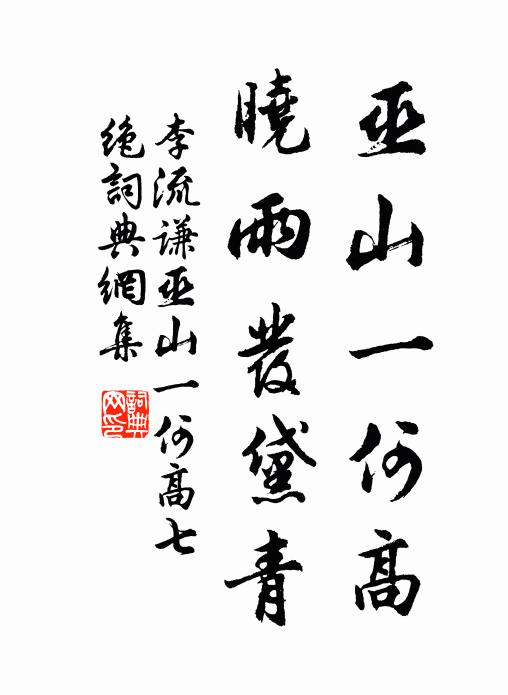 巫山一何高
曉雨發黛青
李流谦巫山一何高七
絶詞典網集
詞典网印